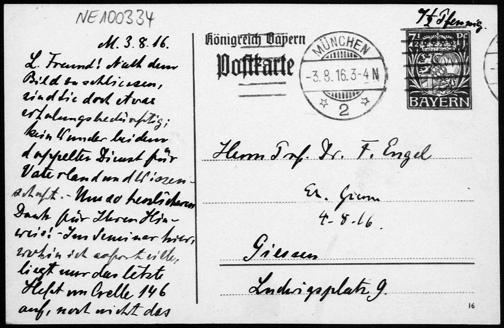 NE100334
M. 3.8.16.
L. Freund! Nach dem
Bild zu schliessen,
sind Sie doch etwas
erholungsbedürftig;
kein Wunder bei dem
doppelten Dienst für
Vaterland und Wissen-
schaft. - Um so herzlicheren
Dank für Ihren Hin-
weis! - Im Seminar hier,
wohin ich sofort eilte,
liegt nur das letzte
Heft von Crelle 146
auf, noch nicht das
Königreich Bayern
Postkarte
MÜNCHEN
-3.8.16.3-4 N
2
7½ Pfennig
7½ Pf
BAYERN
Herrn Prof. Dr. F. Engel
4-8-16
Giessen
Ludwigsplatz 9.
16